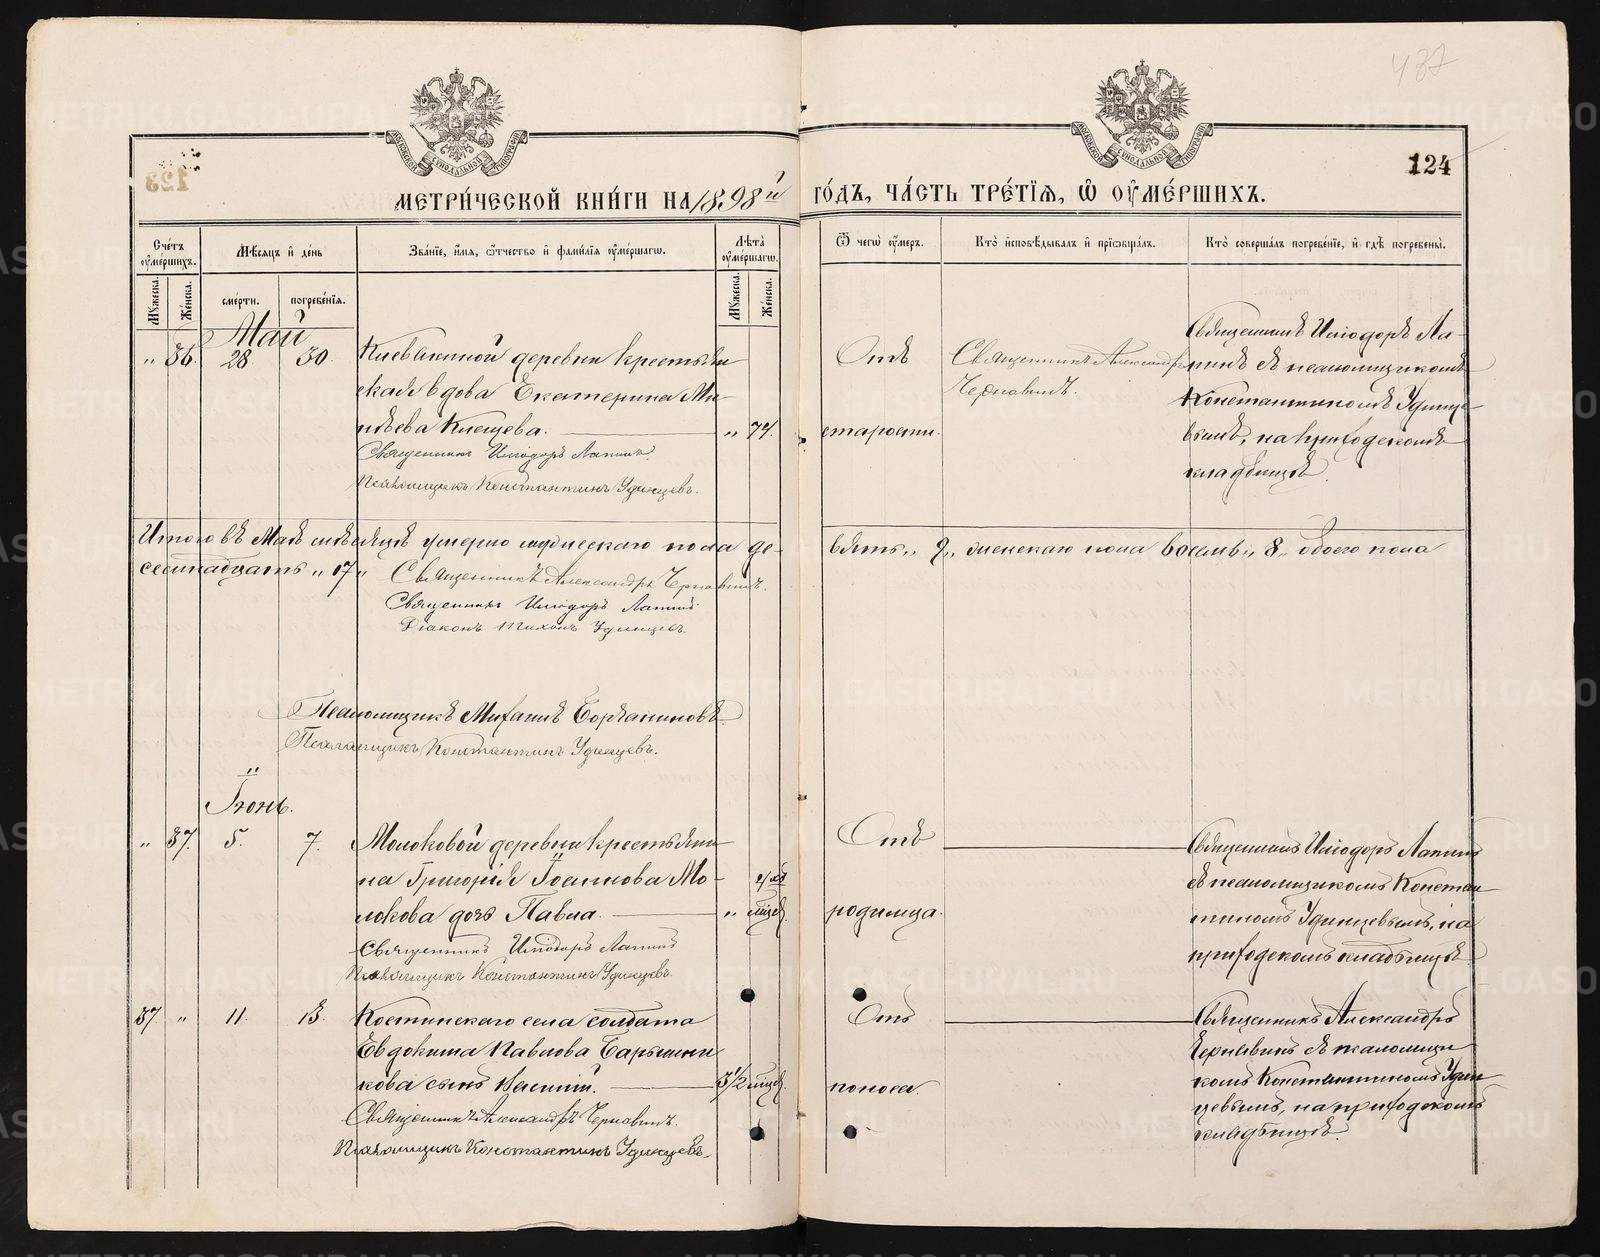 437
124
МЕТРИ́ЧЕСКОЙ КНИ́ГИ НА 1898й ГО́ДЪ, ЧА́СТЬ ТРЕ́ТЇѦ, Ѡ ОУ҆МЕ́РШИХЪ.
Сче́тъ оу҆ме́ршихъ.
Мѣ́сяцъ и҆ де́нь
Зва́нїе, и҆́мѧ, ѻ҆́тчество и҆ фами́лїѧ оу҆ме́ршагѡ.
Лѣ́та оу҆ме́ршагѡ.
Мꙋ́жеска.
Же́нска.
сме́рти.
погребе́нїѧ.
Мꙋ́жеска.
Же́нска.
Ѿ чегѡ̀ оу҆́меръ.
Кто̀ и҆сповѣ́дывалъ и҆ прїѡбща́лъ.
Кто̀ соверша́лъ погребе́нїе, и҆ гдѣ̀ погребены̀.
Май
" 36. 28. 30.
деревни крестьян-
ская вдова Екатерина Ми-
нѣева Клещева. " 74.
Священникъ Илїодоръ Лапинъ.
Псаломщикъ Константинъ Удинцевъ.
Отъ
старости.
Священникъ Александръ
Чернавинъ.
Священникъ Илїодоръ Ла-
пинъ съ псаломщикомъ
Константиномъ Удинце-
вымъ, на приходскомъ
кладбищѣ.
Итого въ Маѣ мѣсяцѣ умерло мужескаго пола де-
вять " 9 " женскаго пола восемь " 8 " обоего пола
семнадцать " 17 " Священникъ Александръ Чернавинъ.
Священникъ Илїодоръ Лапинъ.
Дїаконъ Тихонъ Удинцевъ.
Псаломщикъ Михаилъ
Псаломщикъ Константинъ Удинцевъ.
Їюнь.
" 37. 5. 7.
Молоковой деревни крестьяни-
на Григорїя Мо-
локова дочь Павла. "
мѣсяц.
Священникъ Илїодоръ Лапинъ
Псаломщикъ Константинъ Удинцевъ.
Отъ
родимца.
Священникъ Илїодоръ Лапинъ
съ псаломщикомъ Констан-
тиномъ Удинцевымъ, на
приходскомъ кладбищѣ.
37. " 11. 13.
Костинскаго села солдата
Евдокима Павлова Барышни-
кова сынъ Василїй. 3½ мѣсяц.
Священникъ Александръ Чернавинъ.
Псаломщикъ Константинъ Удинцевъ.
Отъ
поноса.
Священникъ Александръ
Чернавинъ съ псаломщи-
комъ Константиномъ Удин-
цевымъ, на приходскомъ
кладбищѣ.
METRIKI.GASO-URAL.RU